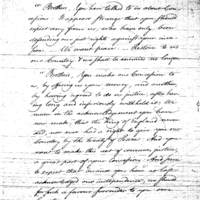 "Brothers, You have talked to us about Con-
cessions. It appears strange that you should
expect any from us, who have only been
defending our just rights against your inva-
sions. We want peace. Restore to us
our Country, & we shall be enemies no longer
"Brothers, You make one Concession to
us, by offering us your money, and another
by having agreed to do us justice, after hav-
ing long and injuriously withheld it. We
mean in the acknowledgement you have
now made, that the King of England never
did, nor ever had a right to give you our
Country, by the treaty of Peace. And you
want to make this act of common justice,
a great part of your Concessions. And seem
to expect that, because you have at last
acknowledged our independence, we should
for such a favour surrender to you our